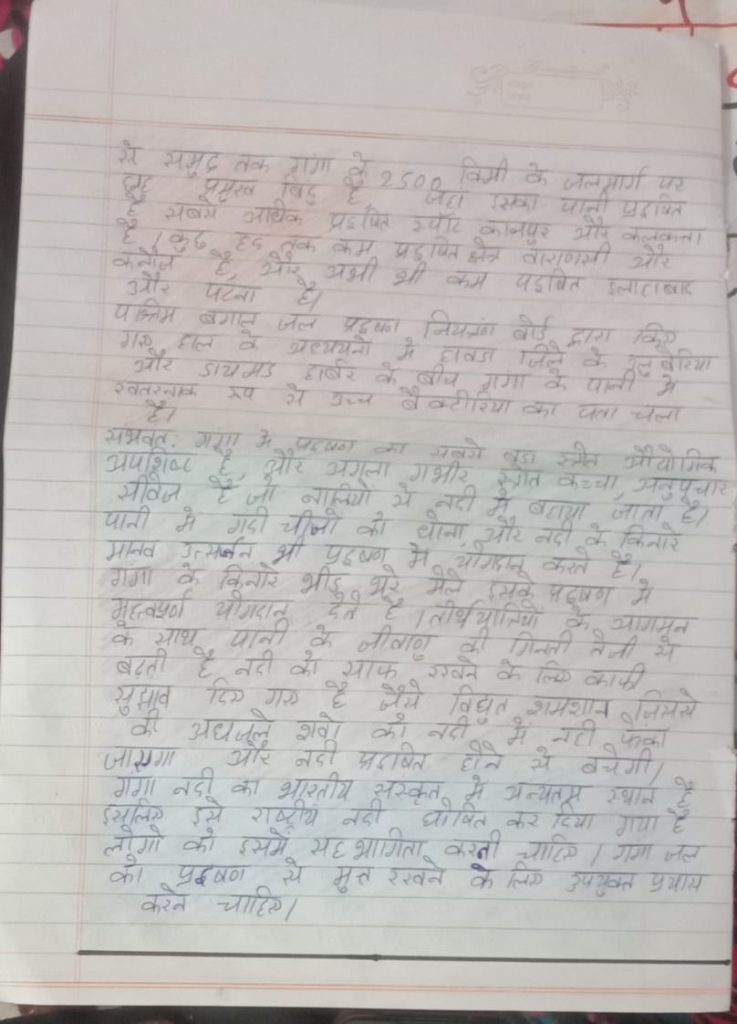 से समुद्र तक गंगा के 2500 किमी के जलमार्ग पर
छह प्रमुख बिंदु है जहा इसका पानी प्रदूषित
है सबसे अधिक प्रदूषित स्पॉट कानपुर और कलकत्ता
है। कुछ हद तक कम प्रदूषित क्षेत्र वाराणसी और
कन्नौज है, और अभी भी कम प्रदूषित इलाहाबाद
और पटना है।
पश्चिम बंगाल जल प्रदूषण नियंत्रण बोर्ड द्वारा किए
गए हाल के अध्ययनो में हावडा जिले के उलुबेरिया
और डायमंड हार्बर के बीच गंगा के पानी में
खतरनाक रूप से उच्च बैक्टीरिया का पता चला
है।
संभवत: गंगा में प्रदूषण का सबसे बडा स्त्रोत औद्योगिक
अपशिष्ट है, और अगला गंभीर स्त्रोत कच्चा, अनुपचार
सीवेज है जो नालियो से नदी में बहाया जाता है।
पानी में गंदी चीजो को धोना, और नदी के किनारे
मानव उत्सर्जन भी प्रदूषण में योगदान करते है।
गंगा के किनारे भीड़ भरे मेले इसके प्रदूषण में
महत्वपूर्ण योगदान देते है। तीर्थयात्रियो के आगमन
के साथ पानी के जीवाणु की गिनती तेजी से
बढती है नदी को साफ रखने के लिए काफी
सुझाव दिए गए है जैसे विद्युत शमशान जिससे
की अधजले शवो को नदी में नही फेंका
जाएगा और नदी प्रदूषित होने से बचेगी।
गंगा नदी का भारतीय संस्कृत में अन्यतम स्थान है
इसलिए इसे राष्ट्रीय नदी घोषित कर दिया गया है
लोगो को इसमे सहभागिता करनी चाहिए। गंगा जल
को प्रदूषण से मुक्त रखने के लिए उपयुक्त प्रयास
करने चाहिए।